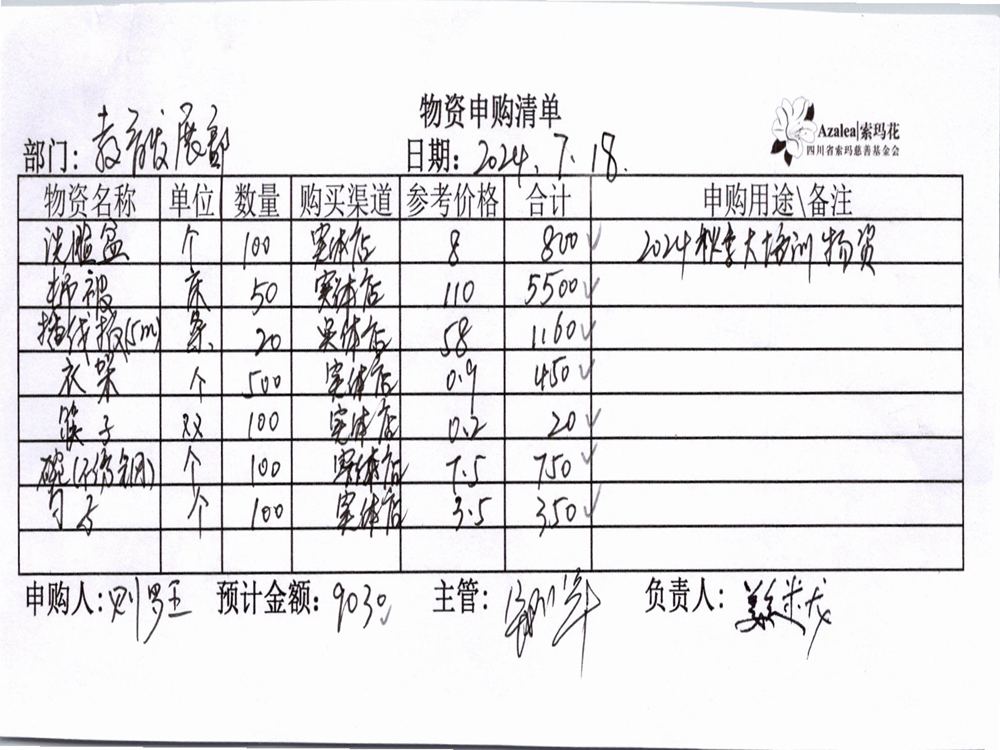 物资申购清单
Azalea|索玛花
四川省索玛慈善基金会
部门：教育发展部 日期：2024.7.18.
物资名称 单位 数量 购买渠道 参考价格 合计 申购用途\备注
洗脸盆 个 100 实体店 8 800 2024秋季大培训物资
棉被 床 50 实体店 110 5500
插线板(5m) 条 20 实体店 58 1160
衣架 个 500 实体店 0.9 450
筷子 双 100 实体店 0.2 20
碗(不锈钢) 个 100 实体店 7.5 750
勺子 个 100 实体店 3.5 350
申购人： 预计金额：9030 主管： 负责人：